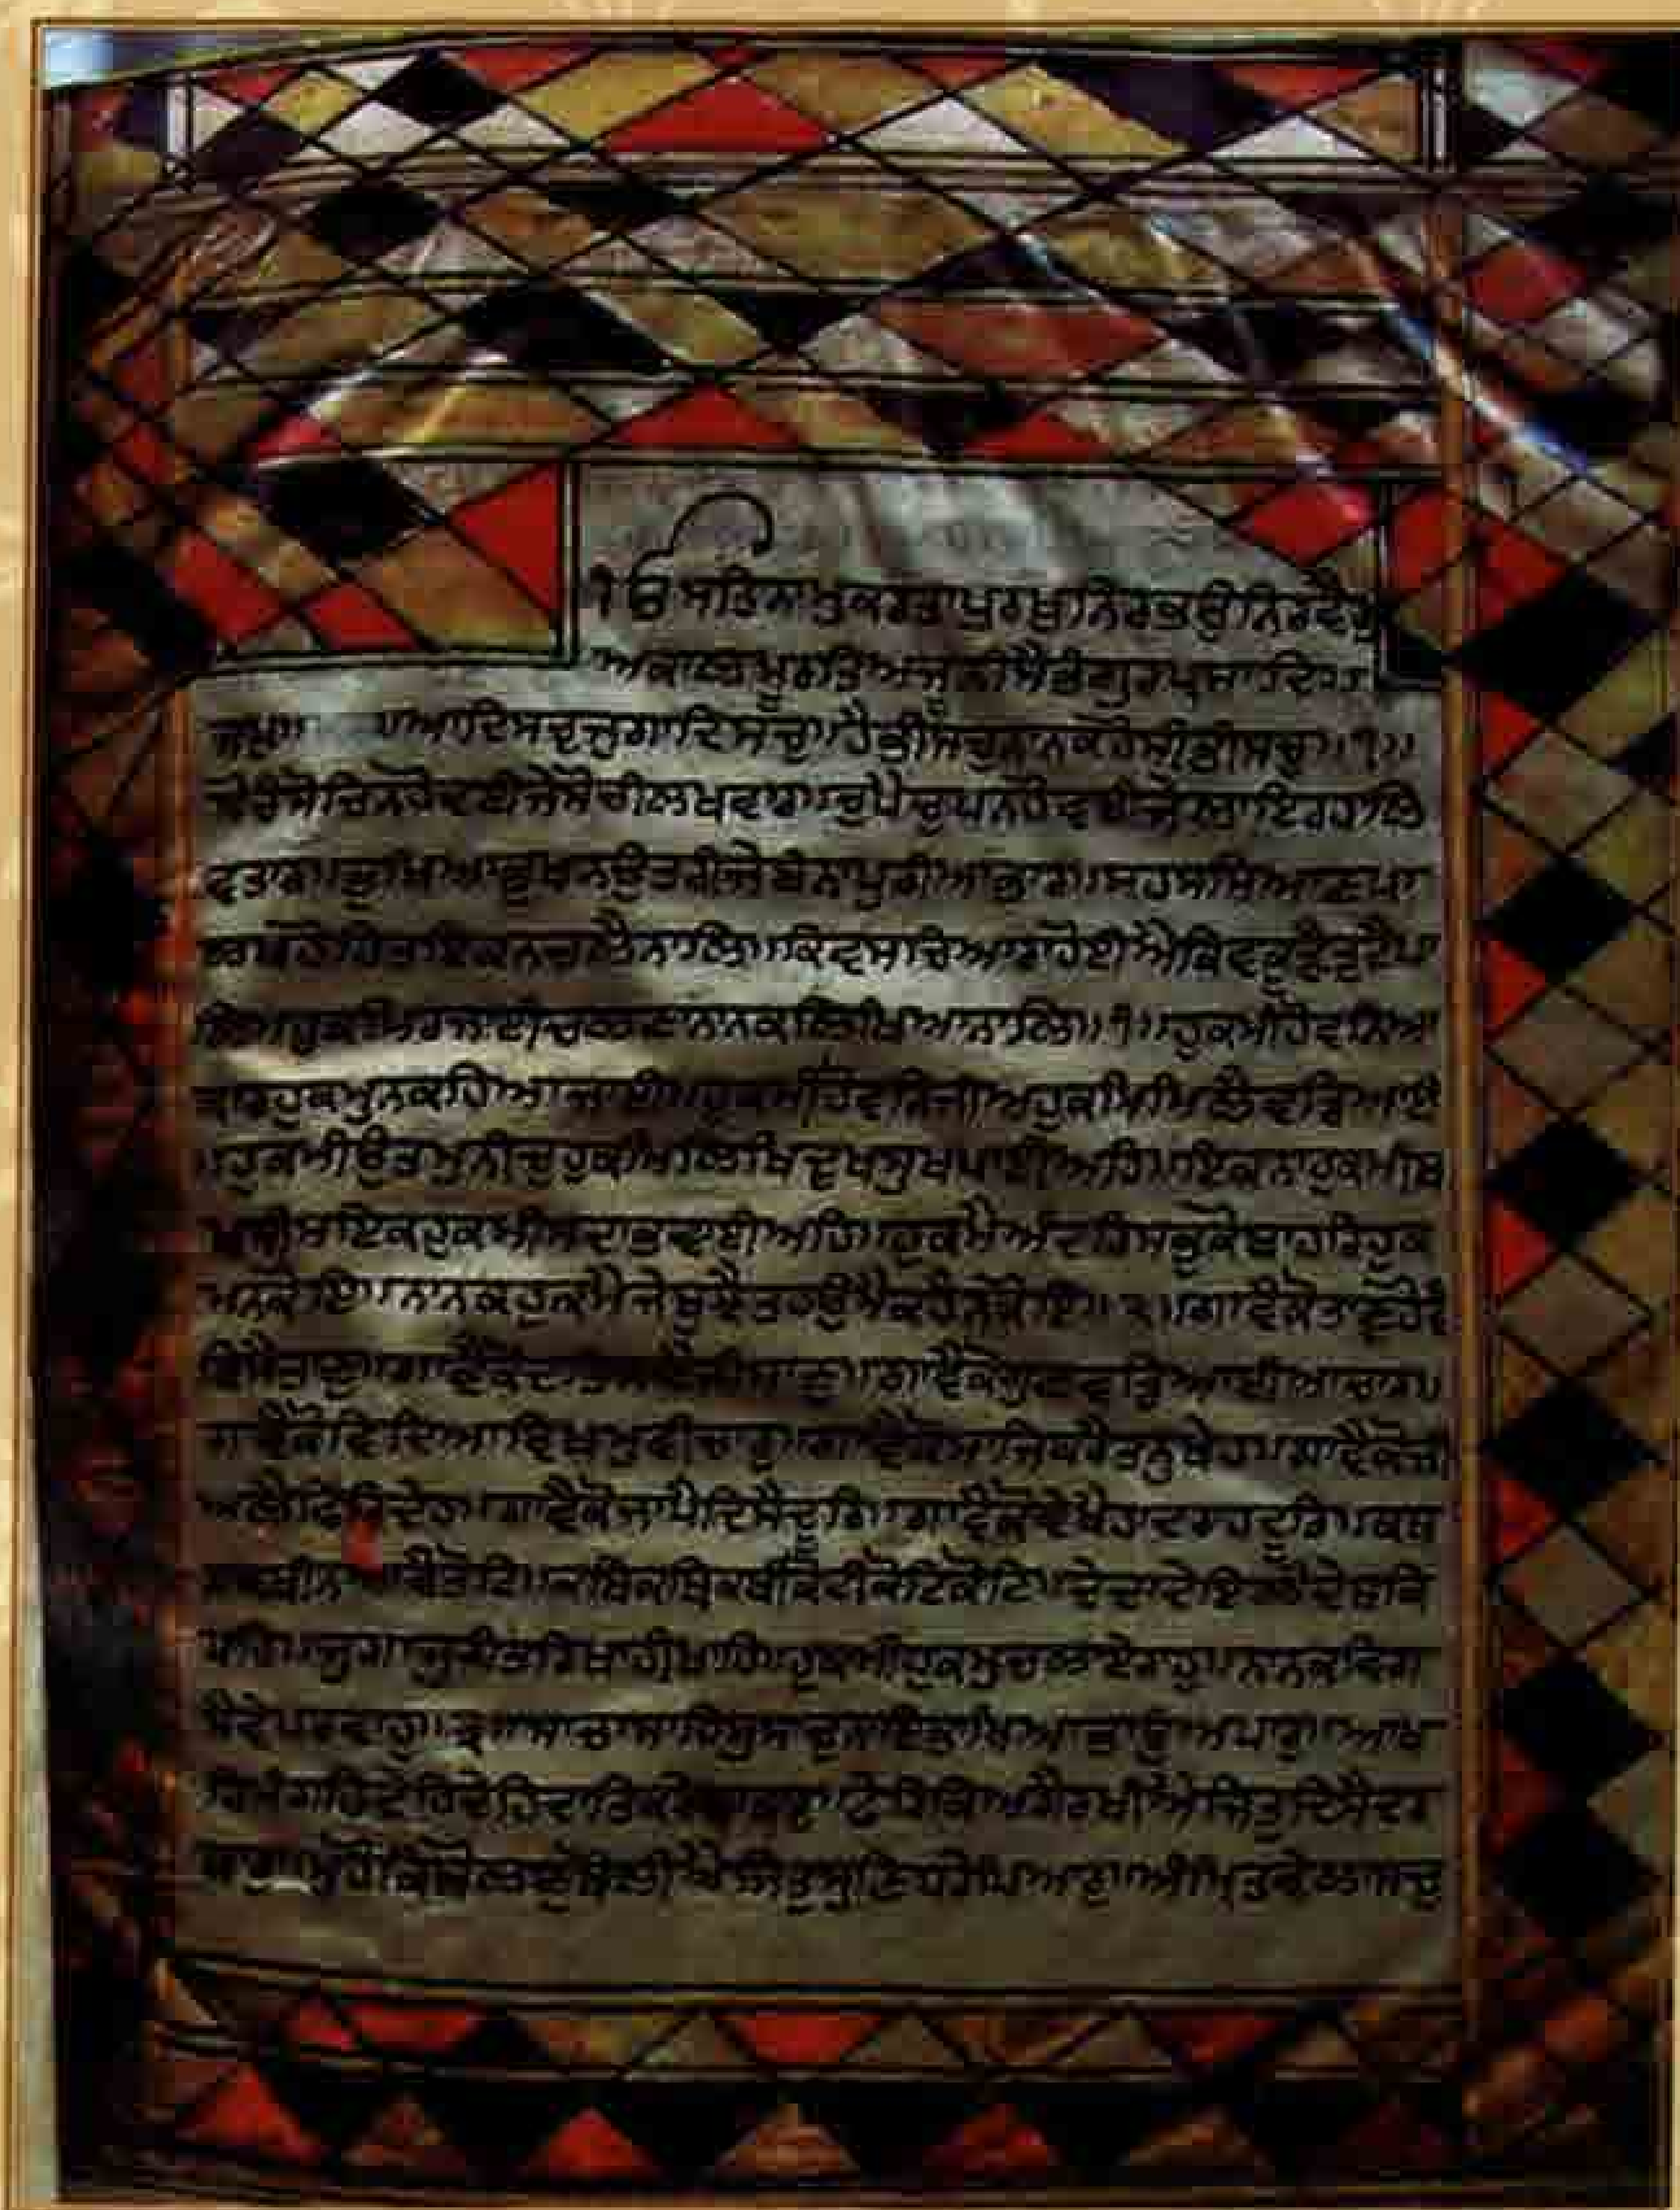 ੴਸਤਿਨਾਮੁਕਰਤਾਪੁਰਖੁਨਿਰਭਉਨਿਰਵੈਰੁ
ਅਕਾਲਮੂਰਤਿਅਜੂਨੀਸੈਭੰਗੁਰਪ੍ਰਸਾਦਿ॥
ਜਪੁ॥ ॥ਆਦਿਸਚੁਜੁਗਾਦਿਸਚੁ॥ਹੈਭੀਸਚੁਨਾਨਕਹੋਸੀਭੀਸਚੁ॥੧॥
ਸੋਚੈਸੋਚਿਨਹੋਵਈਜੇਸੋਚੀਲਖਵਾਰ॥ਚੁਪੈਚੁਪਨਹੋਵਈਜੇਲਾਇਰਹਾਲਿ
ਵਤਾਰ॥ਭੁਖਿਆਭੁਖਨਉਤਰੀਜੇਬੰਨਾਪੁਰੀਆਭਾਰ॥ਸਹਸਸਿਆਣਪਾ
ਲਖਹੋਹਿਤਇਕਨਚਲੈਨਾਲਿ॥ਕਿਵਸਚਿਆਰਾਹੋਈਐਕਿਵਕੂੜੈਤੁਟੈਪਾ
ਲਿ॥ਹੁਕਮਿਰਜਾਈਚਲਣਾਨਾਨਕਲਿਖਿਆਨਾਲਿ॥੧॥ਹੁਕਮੀਹੋਵਨਿਆ
ਕਾਰਹੁਕਮੁਨਕਹਿਆਜਾਈ॥ਹੁਕਮੀਹੋਵਨਿਜੀਅਹੁਕਮਿਮਿਲੈਵਡਿਆਈ
॥ਹੁਕਮੀਉਤਮੁਨੀਚੁਹੁਕਮਿਲਿਖਿਦੁਖਸੁਖਪਾਈਅਹਿ॥ਇਕਨਾਹੁਕਮੀਬ
ਖਸੀਸਇਕਹੁਕਮੀਸਦਾਭਵਾਈਅਹਿ॥ਹੁਕਮੈਅੰਦਰਿਸਭੁਕੋਬਾਹਰਿਹੁਕ
ਮਨਕੋਇ॥ਨਾਨਕਹੁਕਮੈਜੇਬੁਝੈਤਹਉਮੈਕਹੈਨਕੋਇ॥੨॥ਗਾਵੈਕੋਤਾਣੁਹੋਵੈ
ਕਿਸੈਤਾਣੁ॥ਗਾਵੈਕੋਦਾਤਿਜਾਣੈਨੀਸਾਣੁ॥ਗਾਵੈਕੋਗੁਣਵਡਿਆਈਆਚਾਰ॥
ਗਾਵੈਕੋਵਿਦਿਆਵਿਖਮੁਵੀਚਾਰੁ॥ਗਾਵੈਕੋਸਾਜਿਕਰੇਤਨੁਖੇਹ॥ਗਾਵੈਕੋਜੀ
ਅਲੈਫਿਰਿਦੇਹ॥ਗਾਵੈਕੋਜਾਪੈਦਿਸੈਦੂਰਿ॥ਗਾਵੈਕੋਵੇਖੈਹਾਦਰਾਹਦੂਰਿ॥ਕਥ
ਨਾਕਥੀਨ ਆਵੈਤੋਟਿ॥ਕਥਿਕਥਿਕਥੀਕੋਟੀਕੋਟਿਕੋਟਿ॥ਦੇਦਾਦੇਇਲੈਦੇਥਕਿ
ਪਾਹਿ॥ਜੁਗਾਜੁਗੰਤਰਿਖਾਹੀਖਾਹਿ॥ਹੁਕਮੀਹੁਕਮੁਚਲਾਏਰਾਹੁ॥ਨਾਨਕਵਿਗ
ਸੈਵੇਪਰਵਾਹੁ॥੩॥ਸਾਚਾਸਾਹਿਬੁਸਾਚੁਨਾਇਭਾਖਿਆਭਾਉਅਪਾਰੁ॥ਆਖ
ਹਿਮੰਗਹਿਦੇਹਿਦੇਹਿਦਾਤਿਕਰੇਦਾਤਾਰੁ॥ਫੇਰਿਕਿਅਗੈਰਖੀਐਜਿਤੁਦਿਸੈਦਰ
ਬਾਰੁ॥ਮੁਹੌਕਿਬੋਲਣੁਬੋਲੀਐਜਿਤੁਸੁਣਿਧਰੇਪਿਆਰੁ॥ਅੰਮ੍ਰਿਤਵੇਲਾਸਚੁ